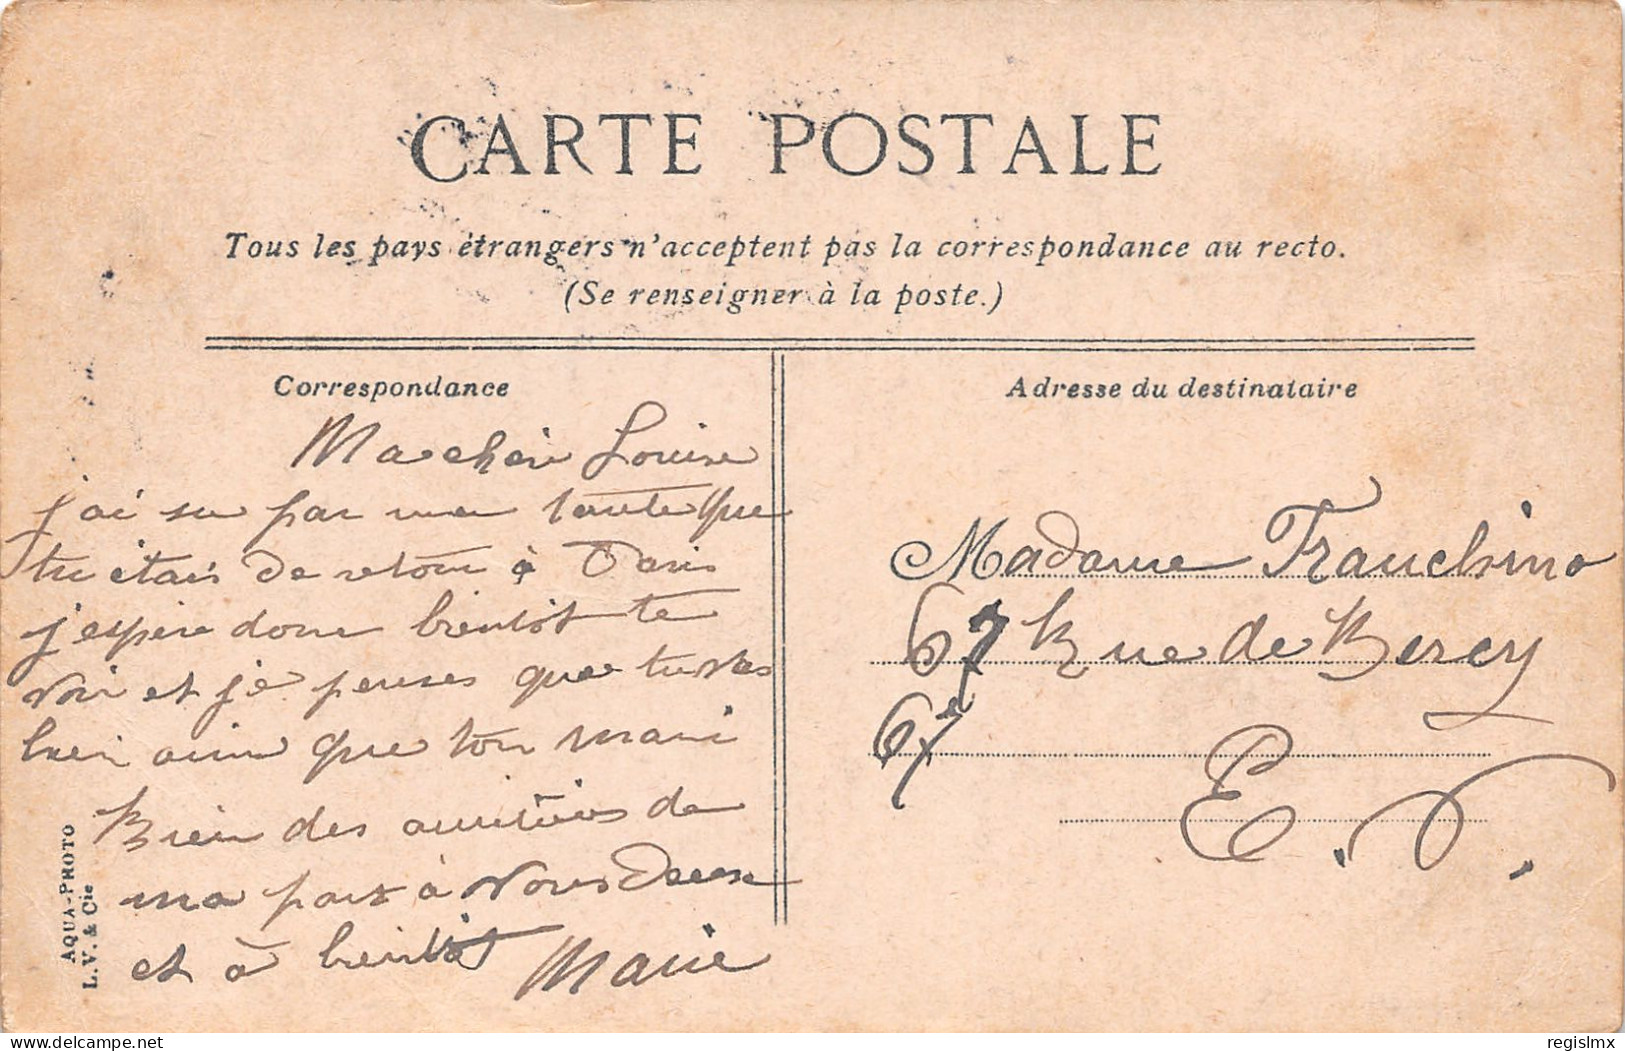 CARTE POSTALE
Tous les pays étrangers n'acceptent pas la correspondance au recto.
(Se renseigner à la poste.)
Correspondance
Ma chère Louise
j'ai su par ma tante que
tu étais de retour à Paris
j'espère donc bientôt te
voir et je penses que tu vas
bien ainsi que ton mari
Bien des amitiés de
ma part à vous deux
et à bientôt Marie
AQUA-PHOTO
L.V. & Cie
Adresse du destinataire
Madame Franchino
67 Rue de Bercy
67
E. V.
delcampe.net
regislmx